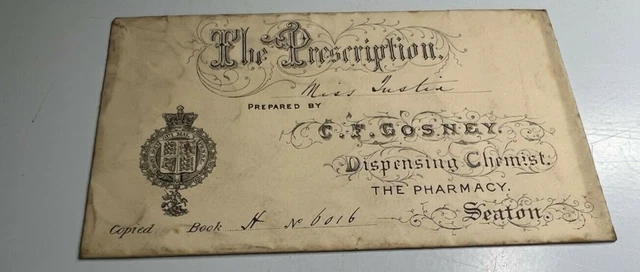 The Prescription.
Miss Tustin
PREPARED BY
C. F. GOSNEY.
Dispensing Chemist.
THE PHARMACY.
Seaton.
Copied Book A No 6016